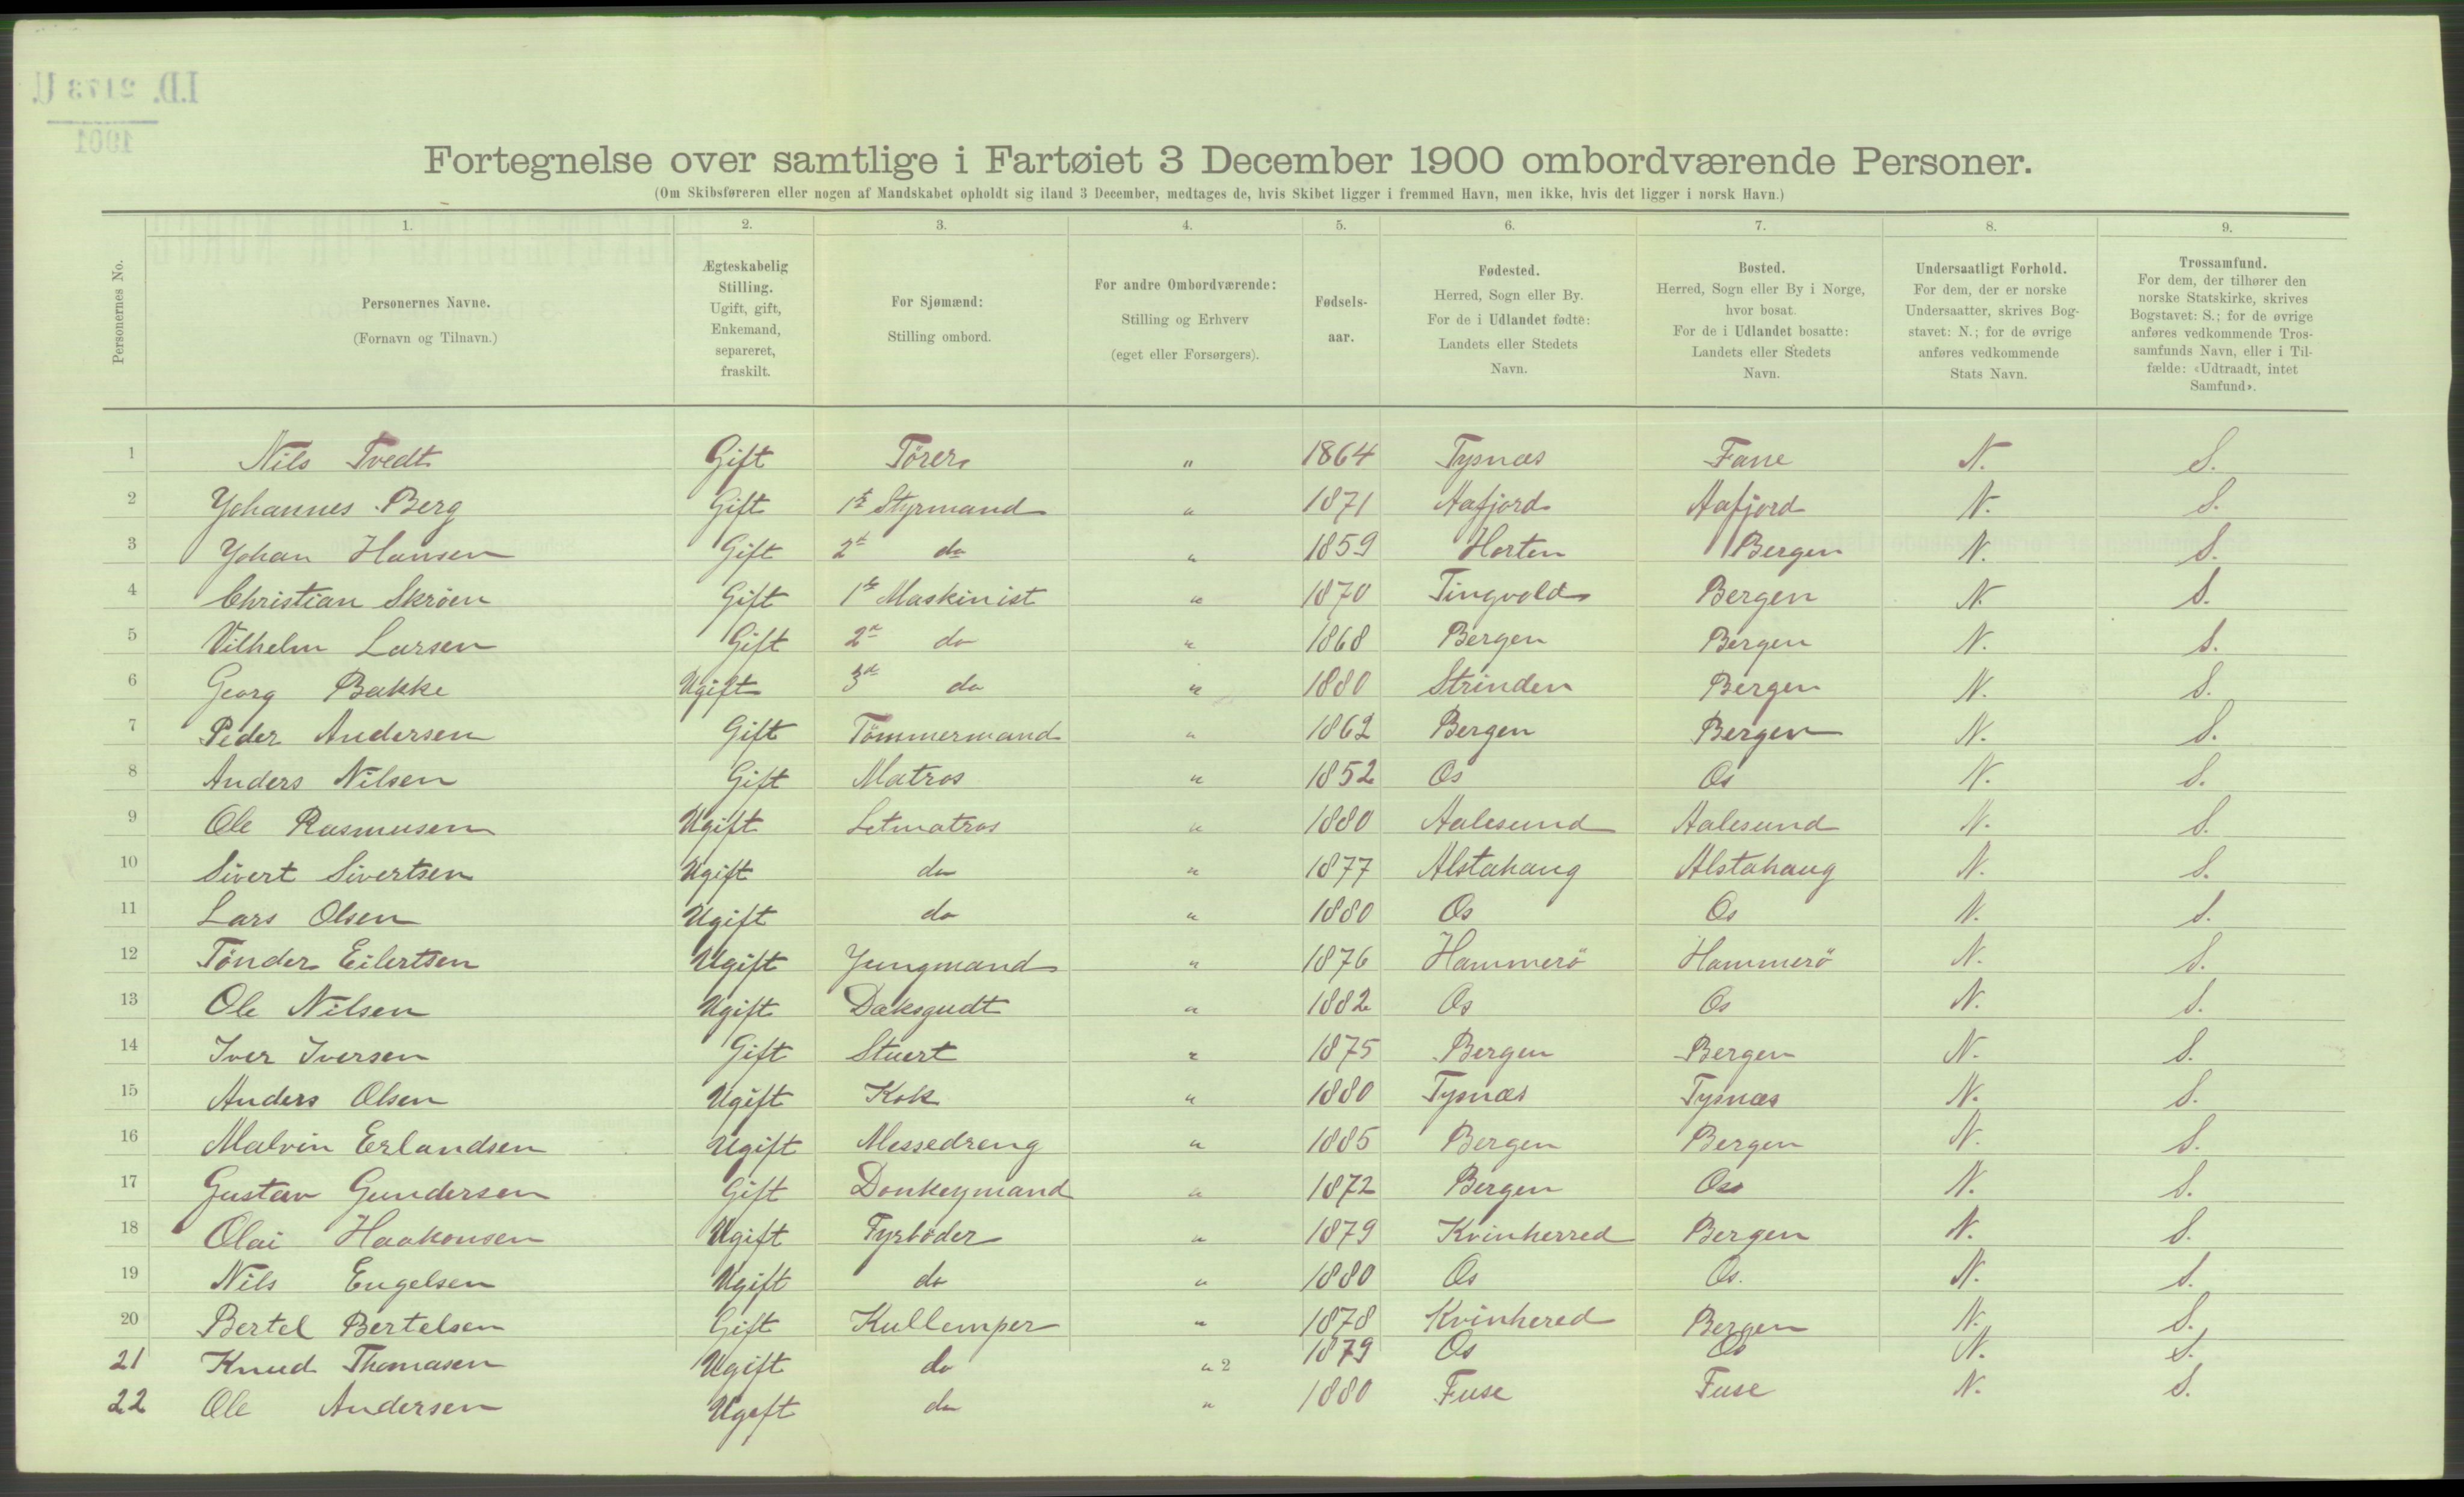 I.D. 2173 U.
1901
Fortegnelse over samtlige i Fartøiet 3 December 1900 ombordværende Personer.
(Om Skibsføreren eller nogen af Mandskabet opholdt sig iland 3 December, medtages de, hvis Skibet ligger i fremmed Havn, men ikke, hvis det ligger i norsk Havn.)
Personernes No.
1. 2. 3. 4. 5. 6. 7. 8. 9.
Personernes Navne.
(Fornavn og Tilnavn.)
Ægteskabelig
Stilling.
Ugift, gift,
Enkemand,
separeret,
fraskilt.
For Sjømænd:
Stilling ombord.
For andre Ombordværende:
Stilling og Erhverv
(eget eller Forsørgers).
Fødsels-
aar.
Fødested.
Herred, Sogn eller By.
For de i Udlandet fødte:
Landets eller Stedets
Navn.
Bosted.
Herred, Sogn eller By i Norge,
hvor bosat.
For de i Udlandet bosatte:
Landets eller Stedets
Navn.
Undersaatligt Forhold.
For dem, der er norske
Undersaatter, skrives Bog-
stavet: N.; for de øvrige
anføres vedkommende
Stats Navn.
Trossamfund.
For dem, der tilhører den
norske Statskirke, skrives
Bogstavet: S.; for de øvrige
anføres vedkommende Tros-
samfunds Navn, eller i Til-
fælde: «Udtraadt, intet
Samfund».
1 Nils Tvedt Gift Förer " 1864 Tysnæs Fane N. S.
2 Johannes Berg Gift 1st Styrmand " 1871 Aafjord Aafjord N. S.
3 Johan Hansen Gift 2t do " 1859 Horten Bergen N. S.
4 Christian Skröen Gift 1st Maskinist " 1870 Tingvold Bergen N. S.
5 Vilhelm Larsen Gift 2n do " 1868 Bergen Bergen N. S.
6 Georg Bakke Ugift 3die do " 1880 Strinden Bergen N. S.
7 Peder Andersen Gift Tömmermand " 1862 Bergen Bergen N. S.
8 Anders Nilsen Gift Matros " 1852 Os Os N. S.
9 Ole Rasmusen Ugift Letmatros " 1880 Aalesund Aalesund N. S.
10 Sivert Sivertsen Ugift do " 1877 Alstahaug Alstahaug N. S.
11 Lars Olsen Ugift do " 1880 Os Os N. S.
12 Tönder Eilertsen Ugift Jungmand " 1876 Hammerö Hammerö N. S.
13 Ole Nilsen Ugift Dæksgudt " 1882 Os Os N. S.
14 Iver Iversen Gift Stuert " 1875 Bergen Bergen N. S.
15 Anders Olsen Ugift Kok " 1880 Tysnæs Tysnæs N. S.
16 Malvin Erlandsen Ugift Messedreng " 1885 Bergen Bergen N. S.
17 Gustav Gundersen Gift Donkeymand " 1872 Bergen Os N. S.
18 Olai Haakonsen Ugift Fyrböder " 1879 Kvinherred Bergen N. S.
19 Nils Engelsen Ugift do " 1880 Os Os. N. S.
20 Bertel Bertelsen Gift Kullemper " 1878 Kvinhered Bergen N. S.
21 Knud Thomasen Ugift do " 2 1879 Os Os N. S.
22 Ole Andersen Ugift do " 1880 Fuse Fuse N. S.